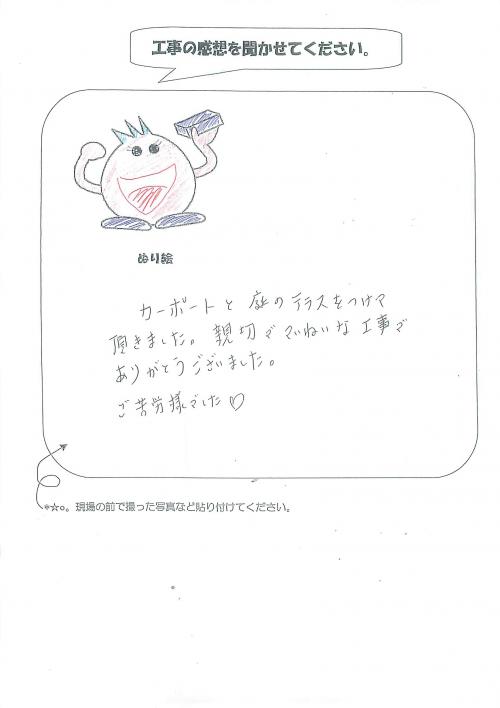 工事の感想を聞かせてください。
ぬり絵
カーポートと庭のテラスをつけて
頂きました。親切でていねいな工事で
ありがとうございました。
ご苦労様でした♡
*☆o。現場の前で撮った写真など貼り付けてください。